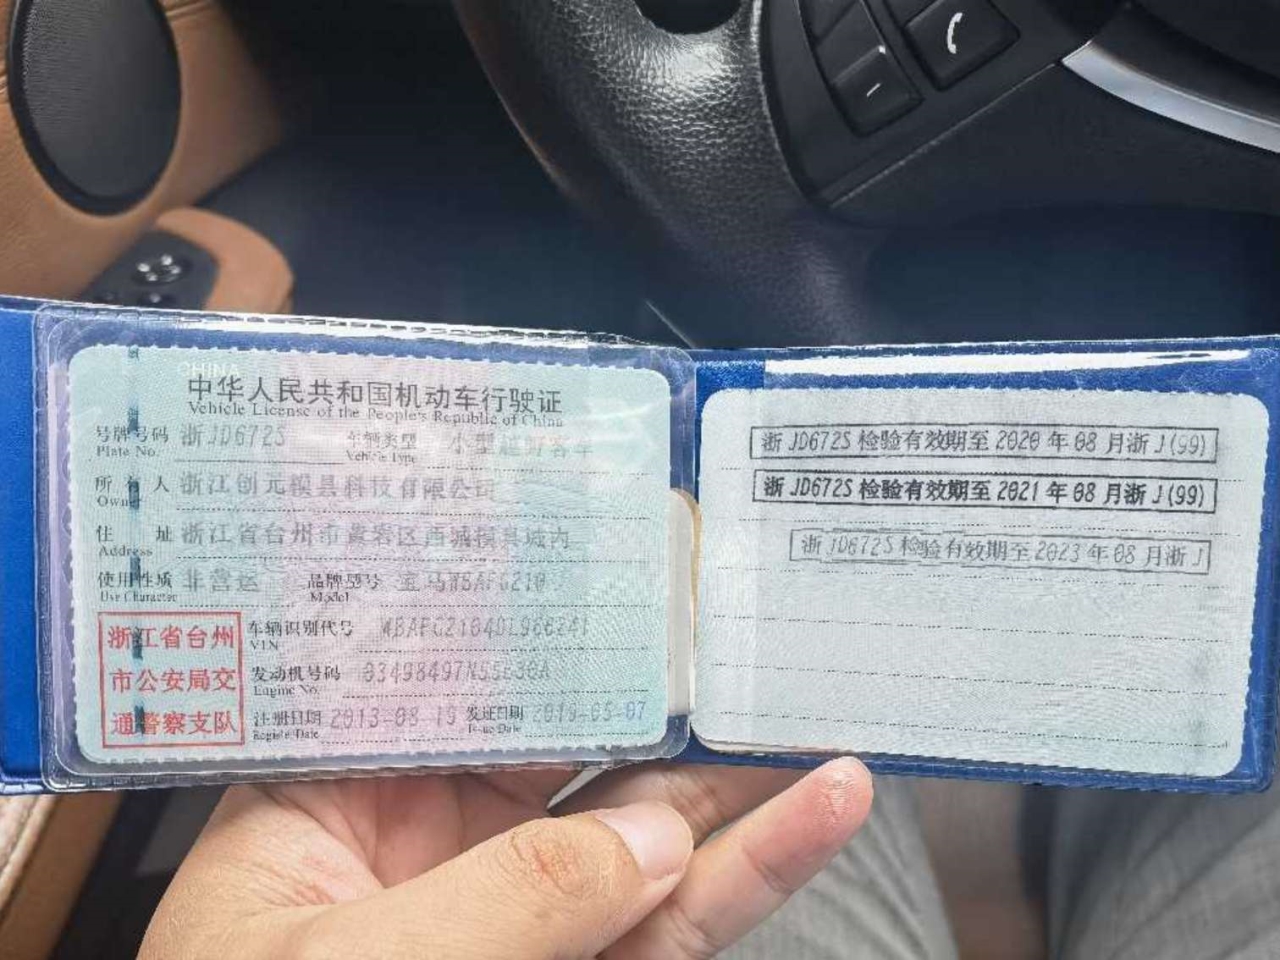 CHINA
中华人民共和国机动车行驶证
Vehicle License of the People's Republic of China
号牌号码 浙JD672S 车辆类型 小型越野客车
Plate No. Vehicle Type
所有人 浙江创元模具科技有限公司
Owner
住址 浙江省台州市黄岩区西城模具城内
Address
使用性质 非营运 品牌型号 宝马WBAFG210
Use Character Model
浙江省台州
市公安局交
通警察支队
车辆识别代号
VIN
发动机号码
Engine No.
注册日期 2013-08-19 发证日期 2019-05-07
Register Date Issue Date
浙JD672S检验有效期至2020年08月浙J(99)
浙JD672S检验有效期至2021年08月浙J(99)
浙JD672S检验有效期至2023年08月浙J